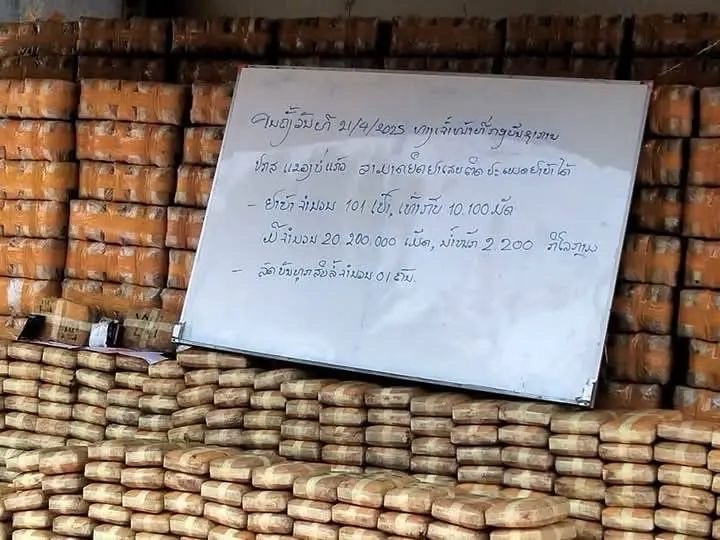 ວັນທີ 21/4/2025 ທາງເຈົ້າໜ້າທີ່
ປກສ ແຂວງບໍ່ແກ້ວ ສາມາດຢຶດຢາເສບຕິດປະເພດຢາບ້າໄດ້
- ຢາບ້າຈຳນວນ 101 ເປົ໋າ, ເທົ່າກັບ 10.100 ມັດ
ມີຈຳນວນ 20 200.000 ເມັດ, ນ້ຳໜັກ 2.200 ກິໂລກຼາມ
- ລົດບັນທຸກສິບລໍ້ຈຳນວນ 01 ຄັນ.